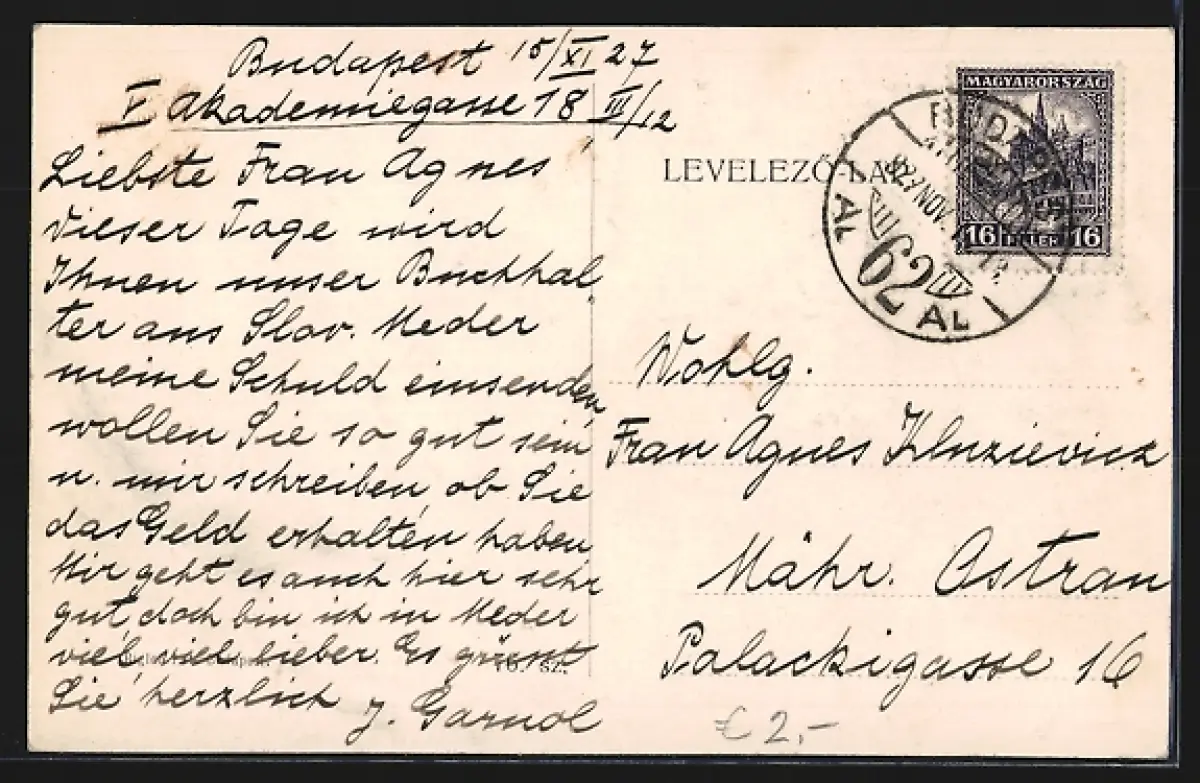 Budapest 15/XI 27
V Akademiegasse 18 III/12
Liebste Frau Agnes
dieser Tage wird
Ihnen unser Buchhal
ter aus Slov. Meder
meine Schuld einsenden,
wollen Sie so gut sein
u. mir schreiben ob Sie
das Geld erhalten haben
Mir geht es auch hier sehr
gut, doch bin ich in Meder
viel, viel lieber. Es grüsst
Sie herzlich
J. Garnol
LEVELEZŐ-LAP
MAGYARORSZÁG
16 FILLÉR 16
BUDAPEST
927 NOV
62
AL AL
Wohlg.
Frau Agnes
Mähr. Ostrau
Palackigasse 16
€ 2,-